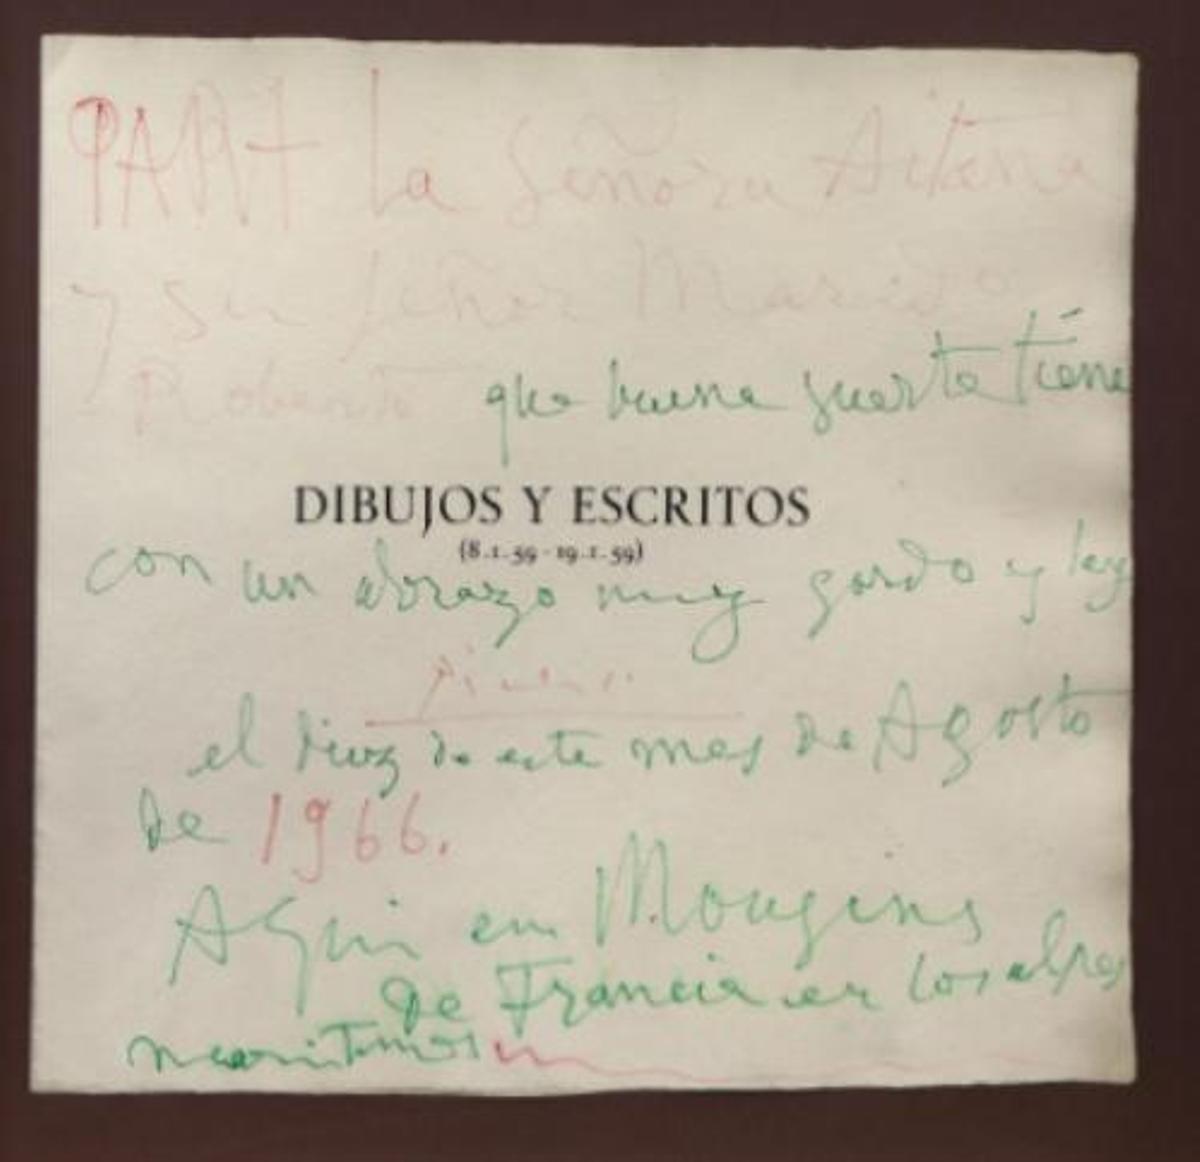 PARA La Señora Aitana
y su señor Marido
Roberto que buena suerte tiene
DIBUJOS Y ESCRITOS
(8.1.59-19.1.59)
con un abrazo muy gordo y hoy
Picasso
el diez de este mes de Agosto
de 1966.
Aqui en Mougins
de Francia en los alpes
maritimos